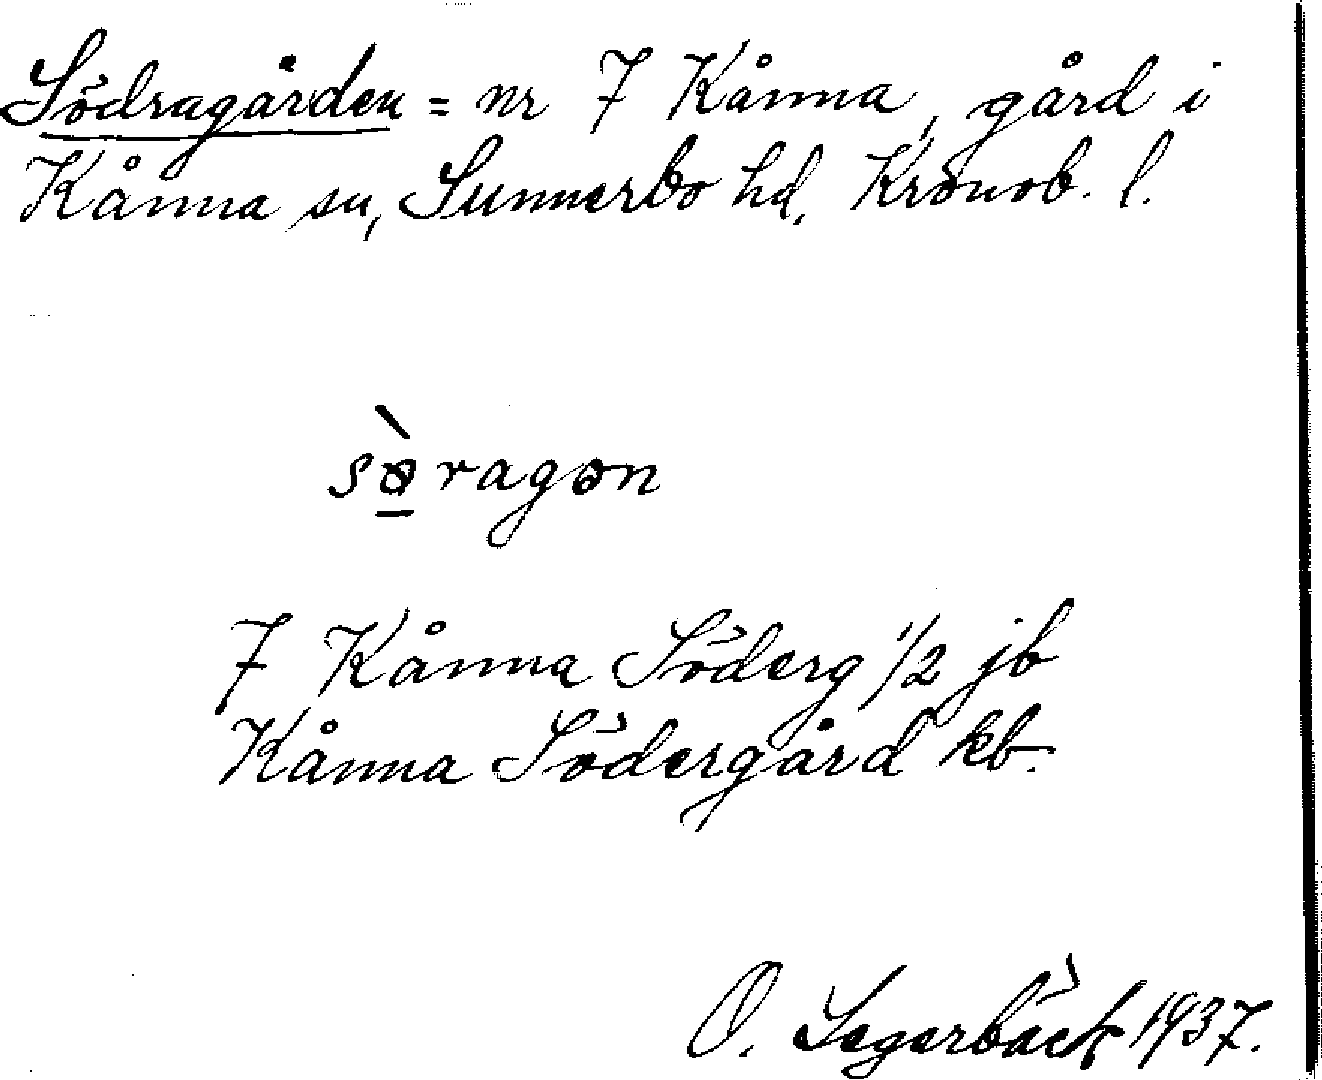 Södragården = nr 7 Kånna, gård i
Kånna sn, Sunnerbo hd, Kronob. l.
sø̱̀ragən
7 Kånna Söderg 1/2 jb
Kånna Södergård kb.
O. Segerbäck 1937.